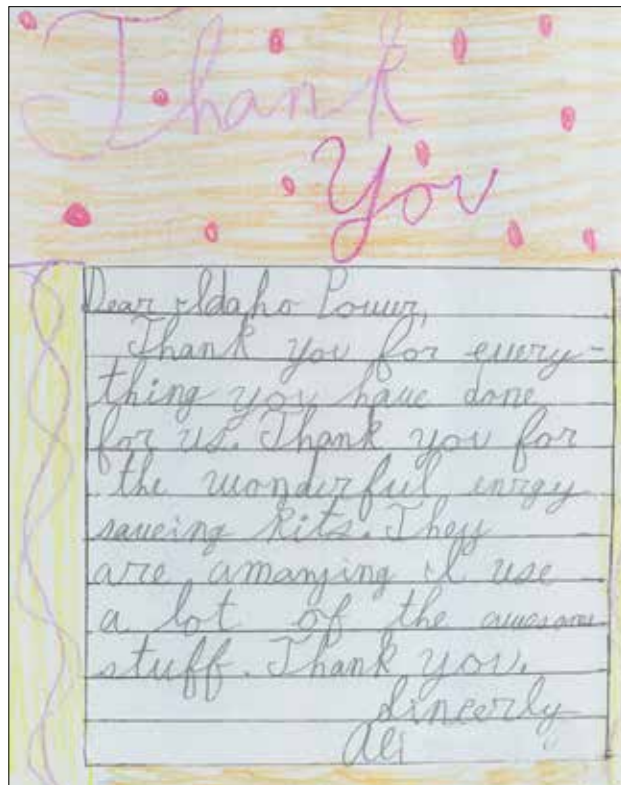 Thank
You
Dear Idaho Power,
Thank you for every-
thing you have done
for us. Thank you for
the wonderful enrgy
saveing kits. They
are amanzing I use
a lot of the awesome
stuff. Thank you.
Sincerly
Ali